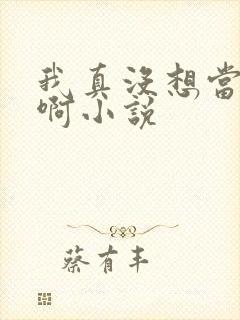 我真没想當
啊小説
蔡有丰